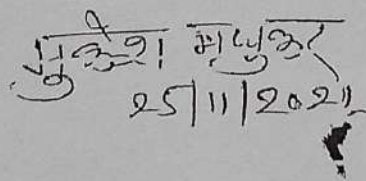 मुकेश मधुकर
25/11/2021